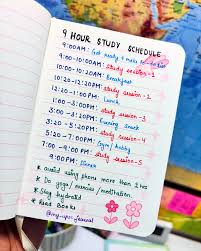 9 HOUR STUDY SCHEDULE
9:00AM: Get ready & make to-do list
9:00-10:00AM: study session-1
10:00-10:20AM: Breakfast
10:20-12:20PM: study session-2
12:20-1:20PM: Lunch
1:20-3:20PM: study session-3
3:20-5:20PM: Evening Snack
5:20-7:00PM: study session-4
7:00-9:00PM: Gym / Hobby
PM: study session-5
PM: Dinner
* Avoid using phone more than 2 hrs
* Do yoga/ exercise / meditation.
* Stay hydrated
* Read Books